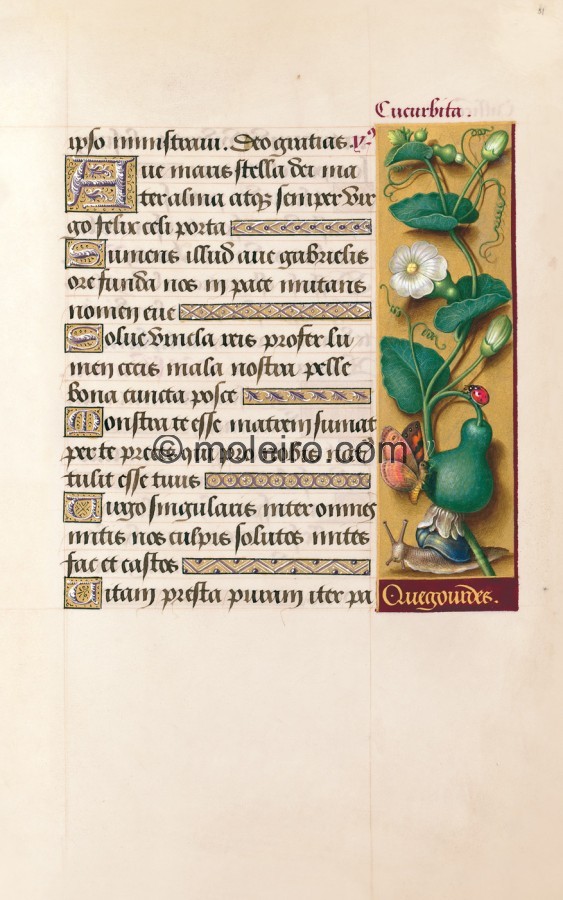 51
Cucurbita.
ipso ministrauit. Deo gratias. ỹ
Aue maris stella dei ma
ter alma atq; semper vir
go felix celi porta
Sumens illud aue gabrielis
ore funda nos in pace mutans
nomen eue
Solue vincla reis profer lu
men cecis mala nostra pelle
bona cuncta posce
Monstra te esse matrem sumat
per te preces qui pro nobis natus
tulit esse tuus
Uirgo singularis inter omnes
mitis nos culpis solutos mites
fac et castos
Uitam presta puram iter pa
Quegourdes.
© moleiro.com